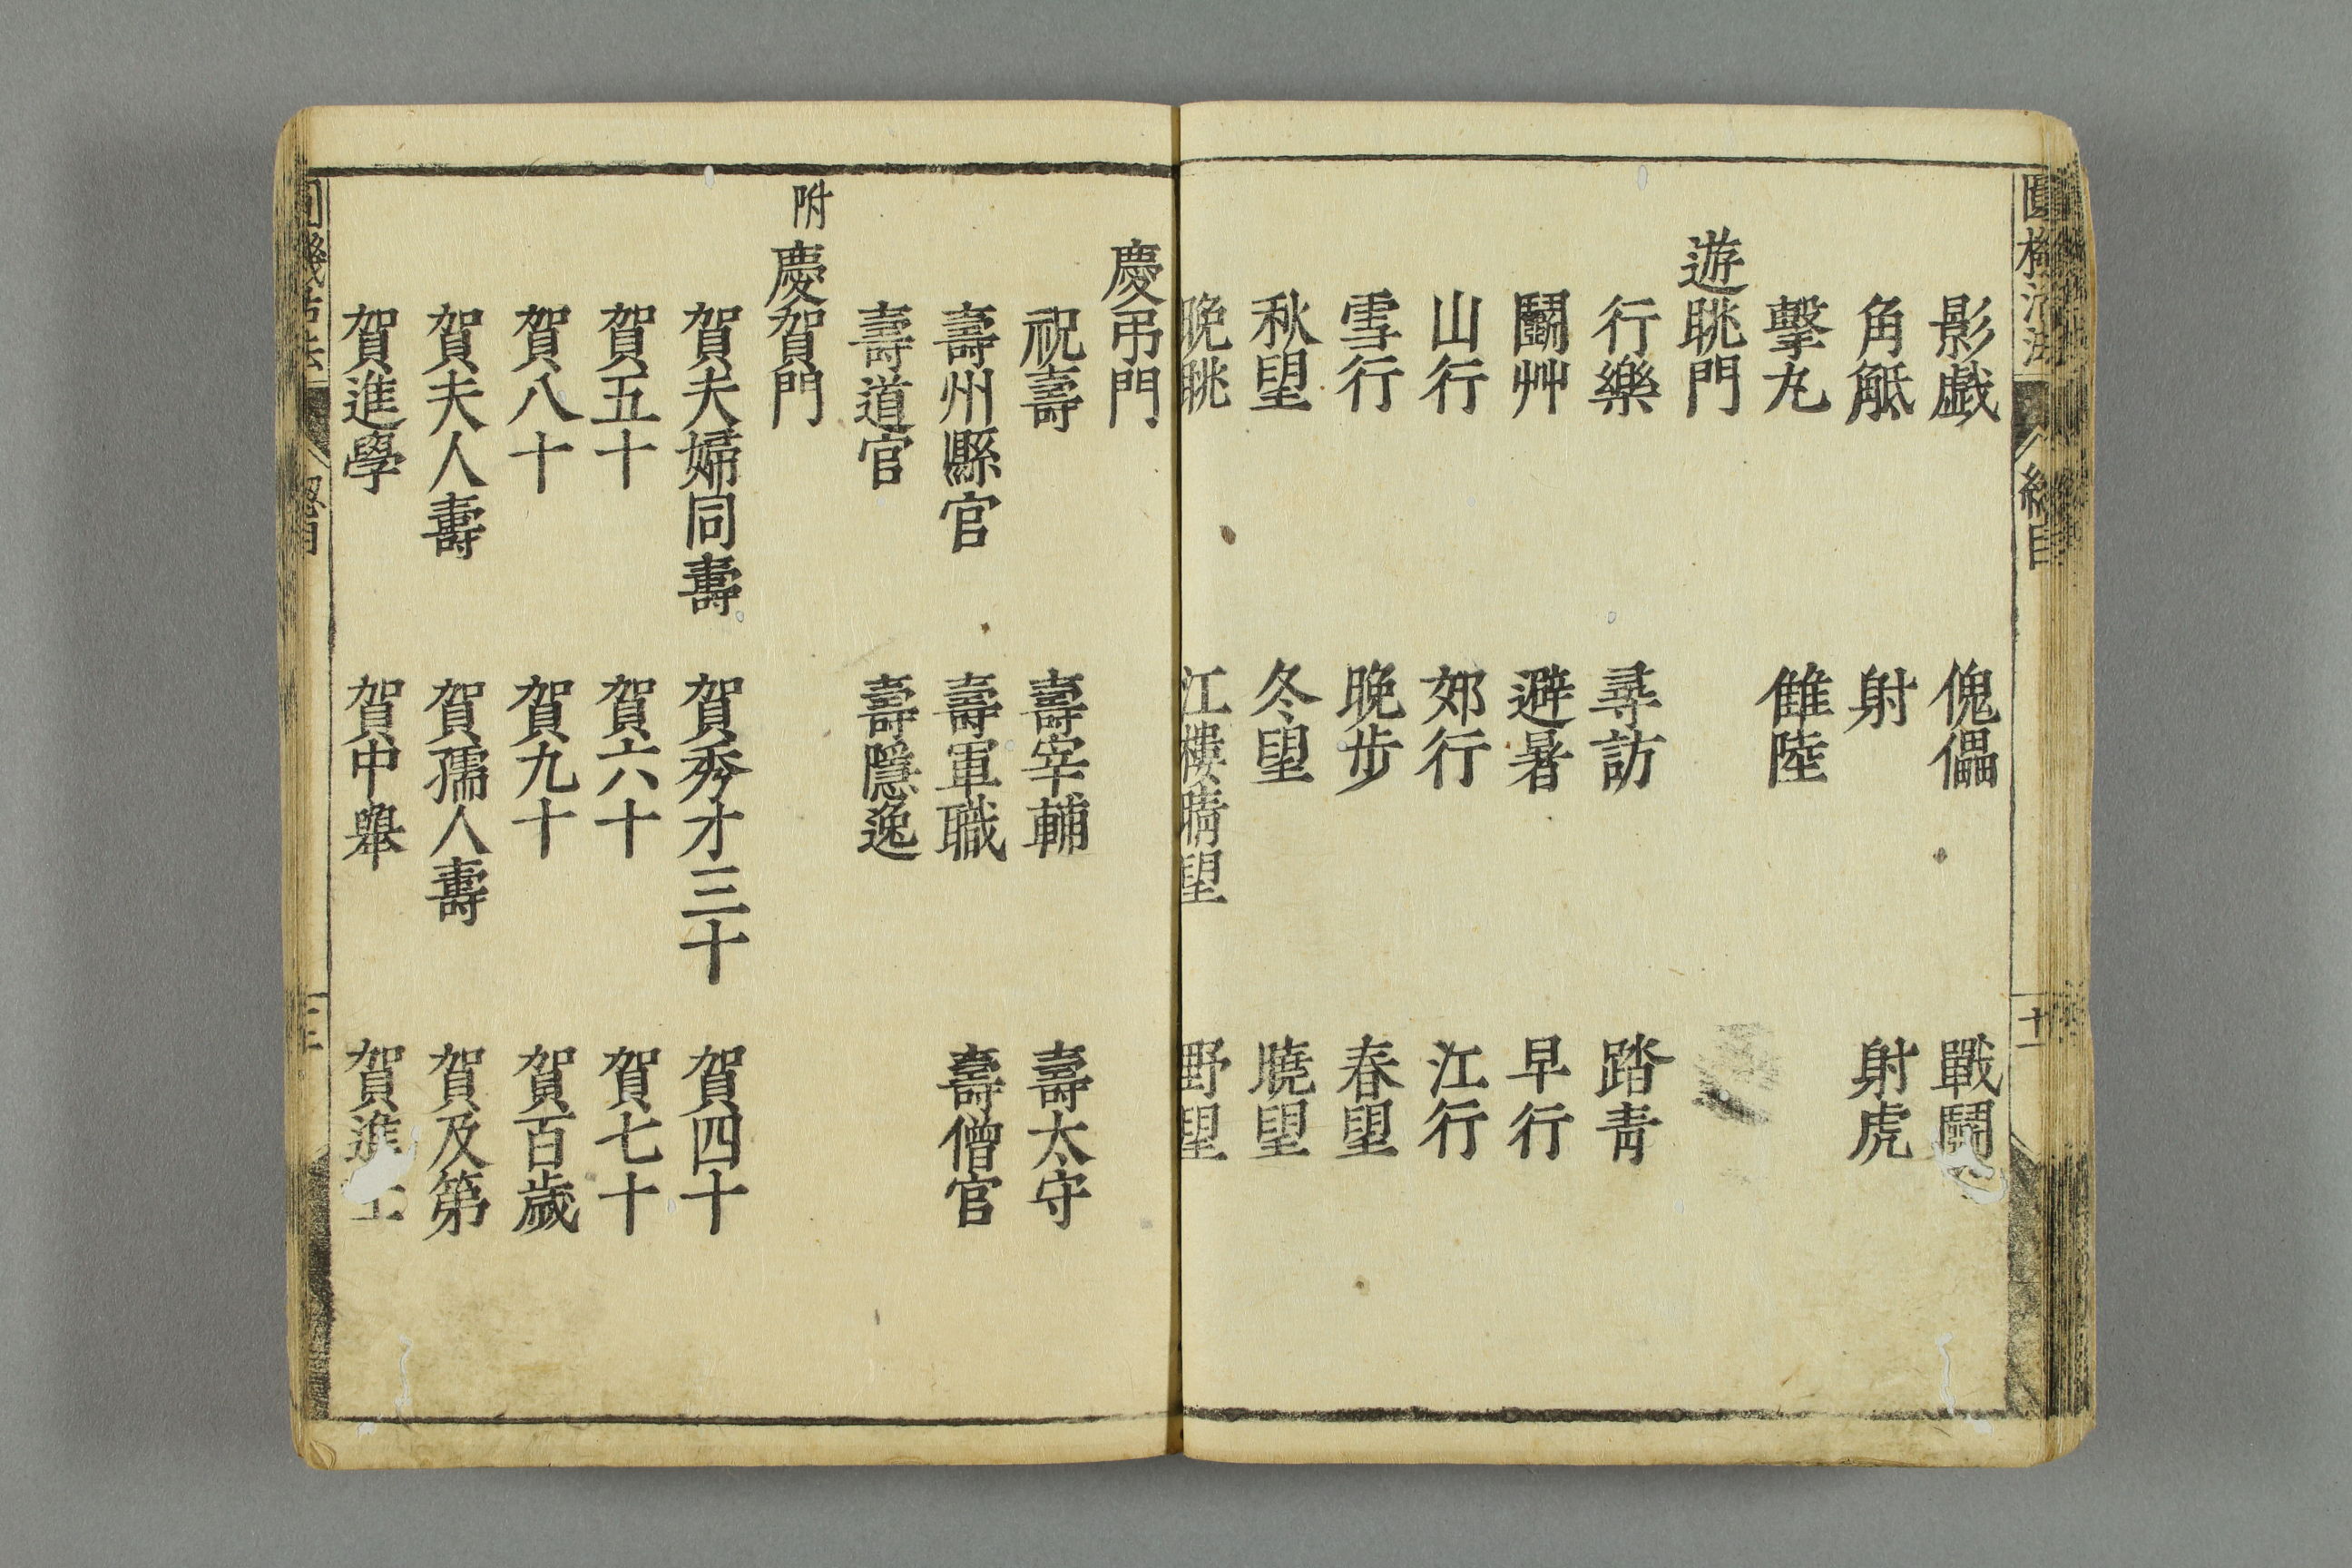 影戯 傀儡 戰鬪
角觝 射 射虎
擊丸 雔陸
遊眺門
行樂 尋訪 踏靑
鬪艸 避暑 早行
山行 郊行 江行
雪行 晩步 春望
秋望 冬望 曉望
晩眺 江樓晴望 野望
總目
慶弔門
祝壽 壽宰輔 壽太守
壽州縣官 壽軍職 壽僧官
壽道官 壽隱逸
附 慶賀門
賀夫婦同壽 賀秀才三十 賀四十
賀五十 賀六十 賀七十
賀八十 賀九十 賀百歲
賀夫人壽 賀孺人壽 賀及第
賀進學 賀中舉 賀進